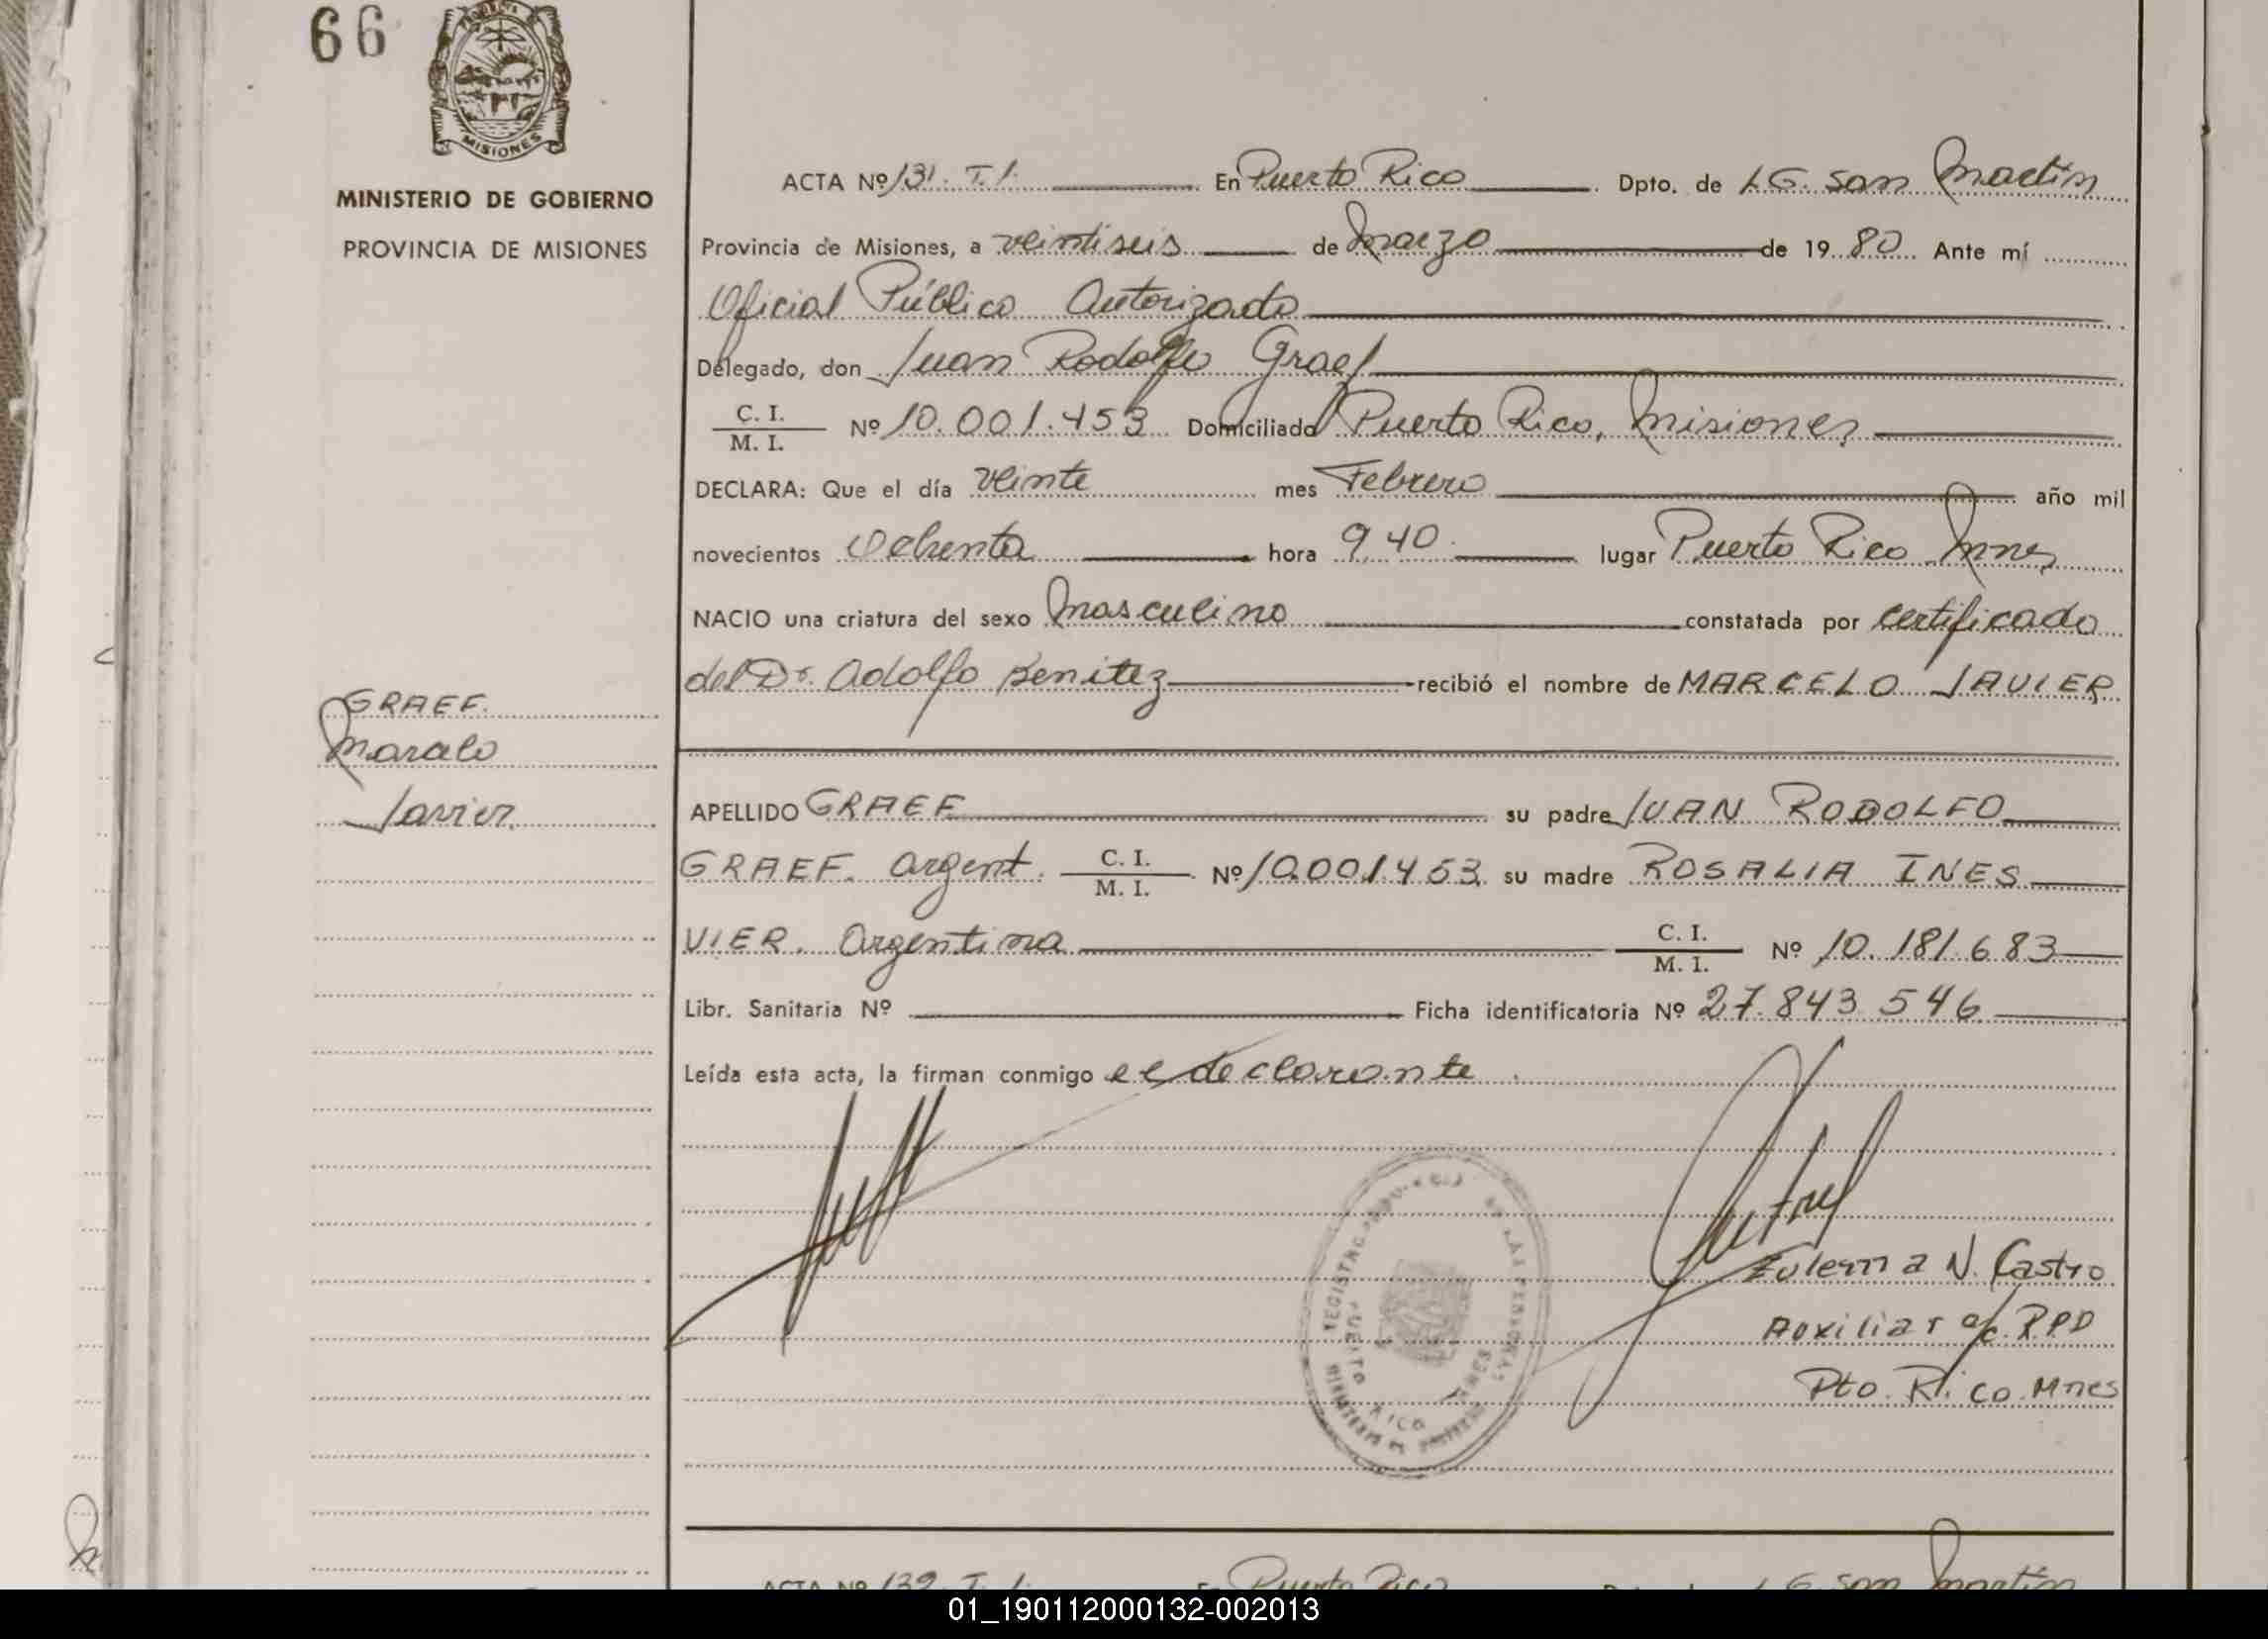 66
MISIONES
MINISTERIO DE GOBIERNO
PROVINCIA DE MISIONES
ACTA Nº 131. T. 1. En Puerto Rico Dpto. de L.G. San Martin
Provincia de Misiones, a veintiseis de Marzo de 19 80 Ante mí
Oficial Público Autorizado
Delegado, don Juan Rodolfo Graef
C. I.
M. I. Nº 10.001.453 Domiciliado Puerto Rico, Misiones
DECLARA: Que el día veinte mes Febrero año mil
novecientos Ochenta hora 9,40 lugar Puerto Rico Mnes
NACIO una criatura del sexo Masculino constatada por certificado
del Dr. Adolfo Benitez recibió el nombre de MARCELO JAVIER
GRAEF.
Marcelo
Javier
APELLIDO GRAEF su padre JUAN RODOLFO
GRAEF. Argent. C. I.
M. I. Nº 10.001.453 su madre ROSALIA INES
VIER. Argentina C. I.
M. I. Nº 10.181.683
Libr. Sanitaria Nº Ficha identificatoria Nº 27.843.546
Leída esta acta, la firman conmigo el declarante.
Eulema N. Castro
Auxiliar a/c. R.P.D
Pto. Rico. Mnes
REGISTRO DE LAS PERSONAS
PUERTO RICO
ACTA Nº 132. T. 1. En Puerto Rico L.G. San Martin
01_190112000132-002013